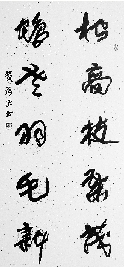 松高枝葉茂
鶴老羽毛新